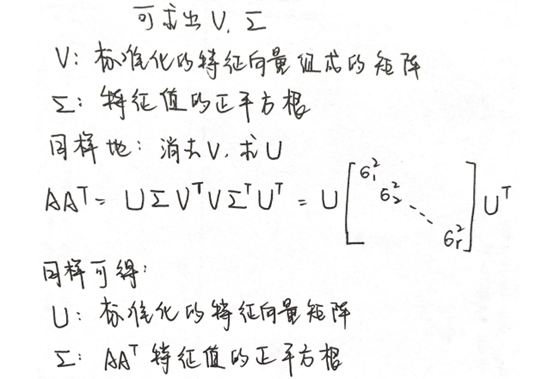 可求出 V, Σ
V: 标准化的特征向量组成的矩阵
Σ: 特征值的正平方根
同样地: 消去V, 求U
AAᵀ = UΣVᵀVΣᵀUᵀ = U [σ₁² σ₂² ⋱ σᵣ²] Uᵀ
同样可得:
U: 标准化的特征向量矩阵
Σ: AAᵀ 特征值的正平方根